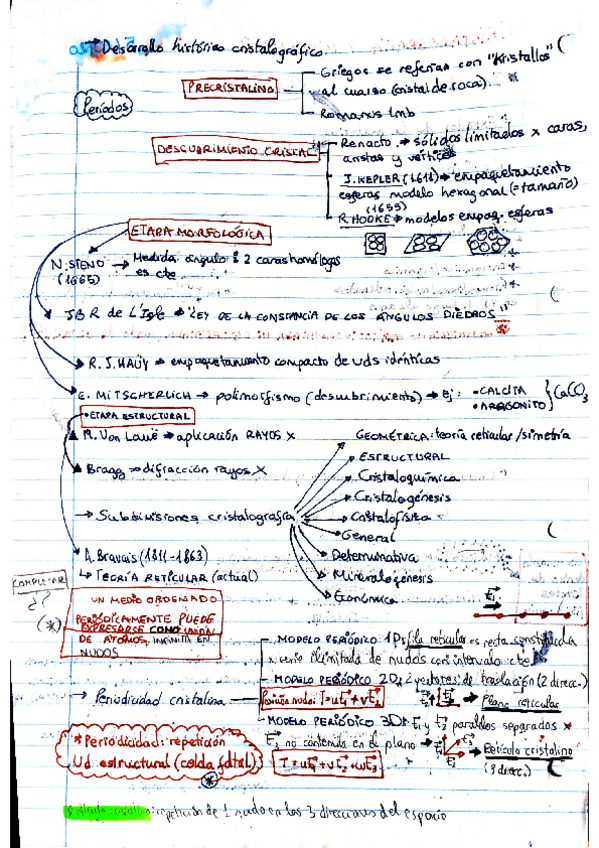 Desarrollo histórico cristalográfico.
Griegos se referían con "Kristallos"
PRECRISTALINO
al cuarzo (cristal de roca).
Períodos
Romanos
Renacto → sólidos limitados x caras,
DESCUBRIMIENTO CRISTAL
aristas y vértices
J. KEPLER (1611) → empaquetamiento
esferas modelo hexagonal (= tamaño)
(1655)
R. HOOKE → modelos empaq. esferas
ETAPA MORFOLÓGICA
N. STENO → Medida ángulo 2 caras homólogas
(1665) es cte
de L'Isle → "LEY DE LA CONSTANCIA DE LOS ÁNGULOS DIEDROS"
R. J. HAÜY → empaquetamiento compacto de uds idénticas
E. MITSCHERLICH → polimorfismo (descubrimiento) → ej: • CALCITA } CaCO3
• ARAGONITO
• ETAPA ESTRUCTURAL
M. Von Laue → aplicación RAYOS X
GEOMÉTRICA: teoría reticular/simetría
ESTRUCTURAL
Bragg → difracción rayos X
Cristaloquímica
Cristalogénesis
→ Subdivisiones cristalografía
Cristalofísica
General
A. Bravais (1811-1863)
Determinativa
↳ TEORÍA RETICULAR (actual)
Mineralogénesis
COMPLETAR
Económica
¿?
UN MEDIO ORDENADO
PERIÓDICAMENTE PUEDE
(*)
EXPRESARSE COMO
DE ÁTOMOS, INFINITA EN
NUDOS
MODELO PERIÓDICO 1D: fila reticular es recta
x serie ilimitada de nudos con intervalo cte
MODELO PERIÓDICO 2D: 2 vectores de traslación (2 direcc.)
→ Periodicidad cristalina
Posición nudos:
Plano reticular
MODELO PERIÓDICO 3D: t1 y t2 paralelos separados x
* Periodicidad: repetición
t3 no contenida en el plano →
Retículo cristalino
Ud estructural (celda fdtal)
T = ut1 + vt2 + wt3
(3 direcc.)
repetición de 1 nudo en las 3 direcciones del espacio